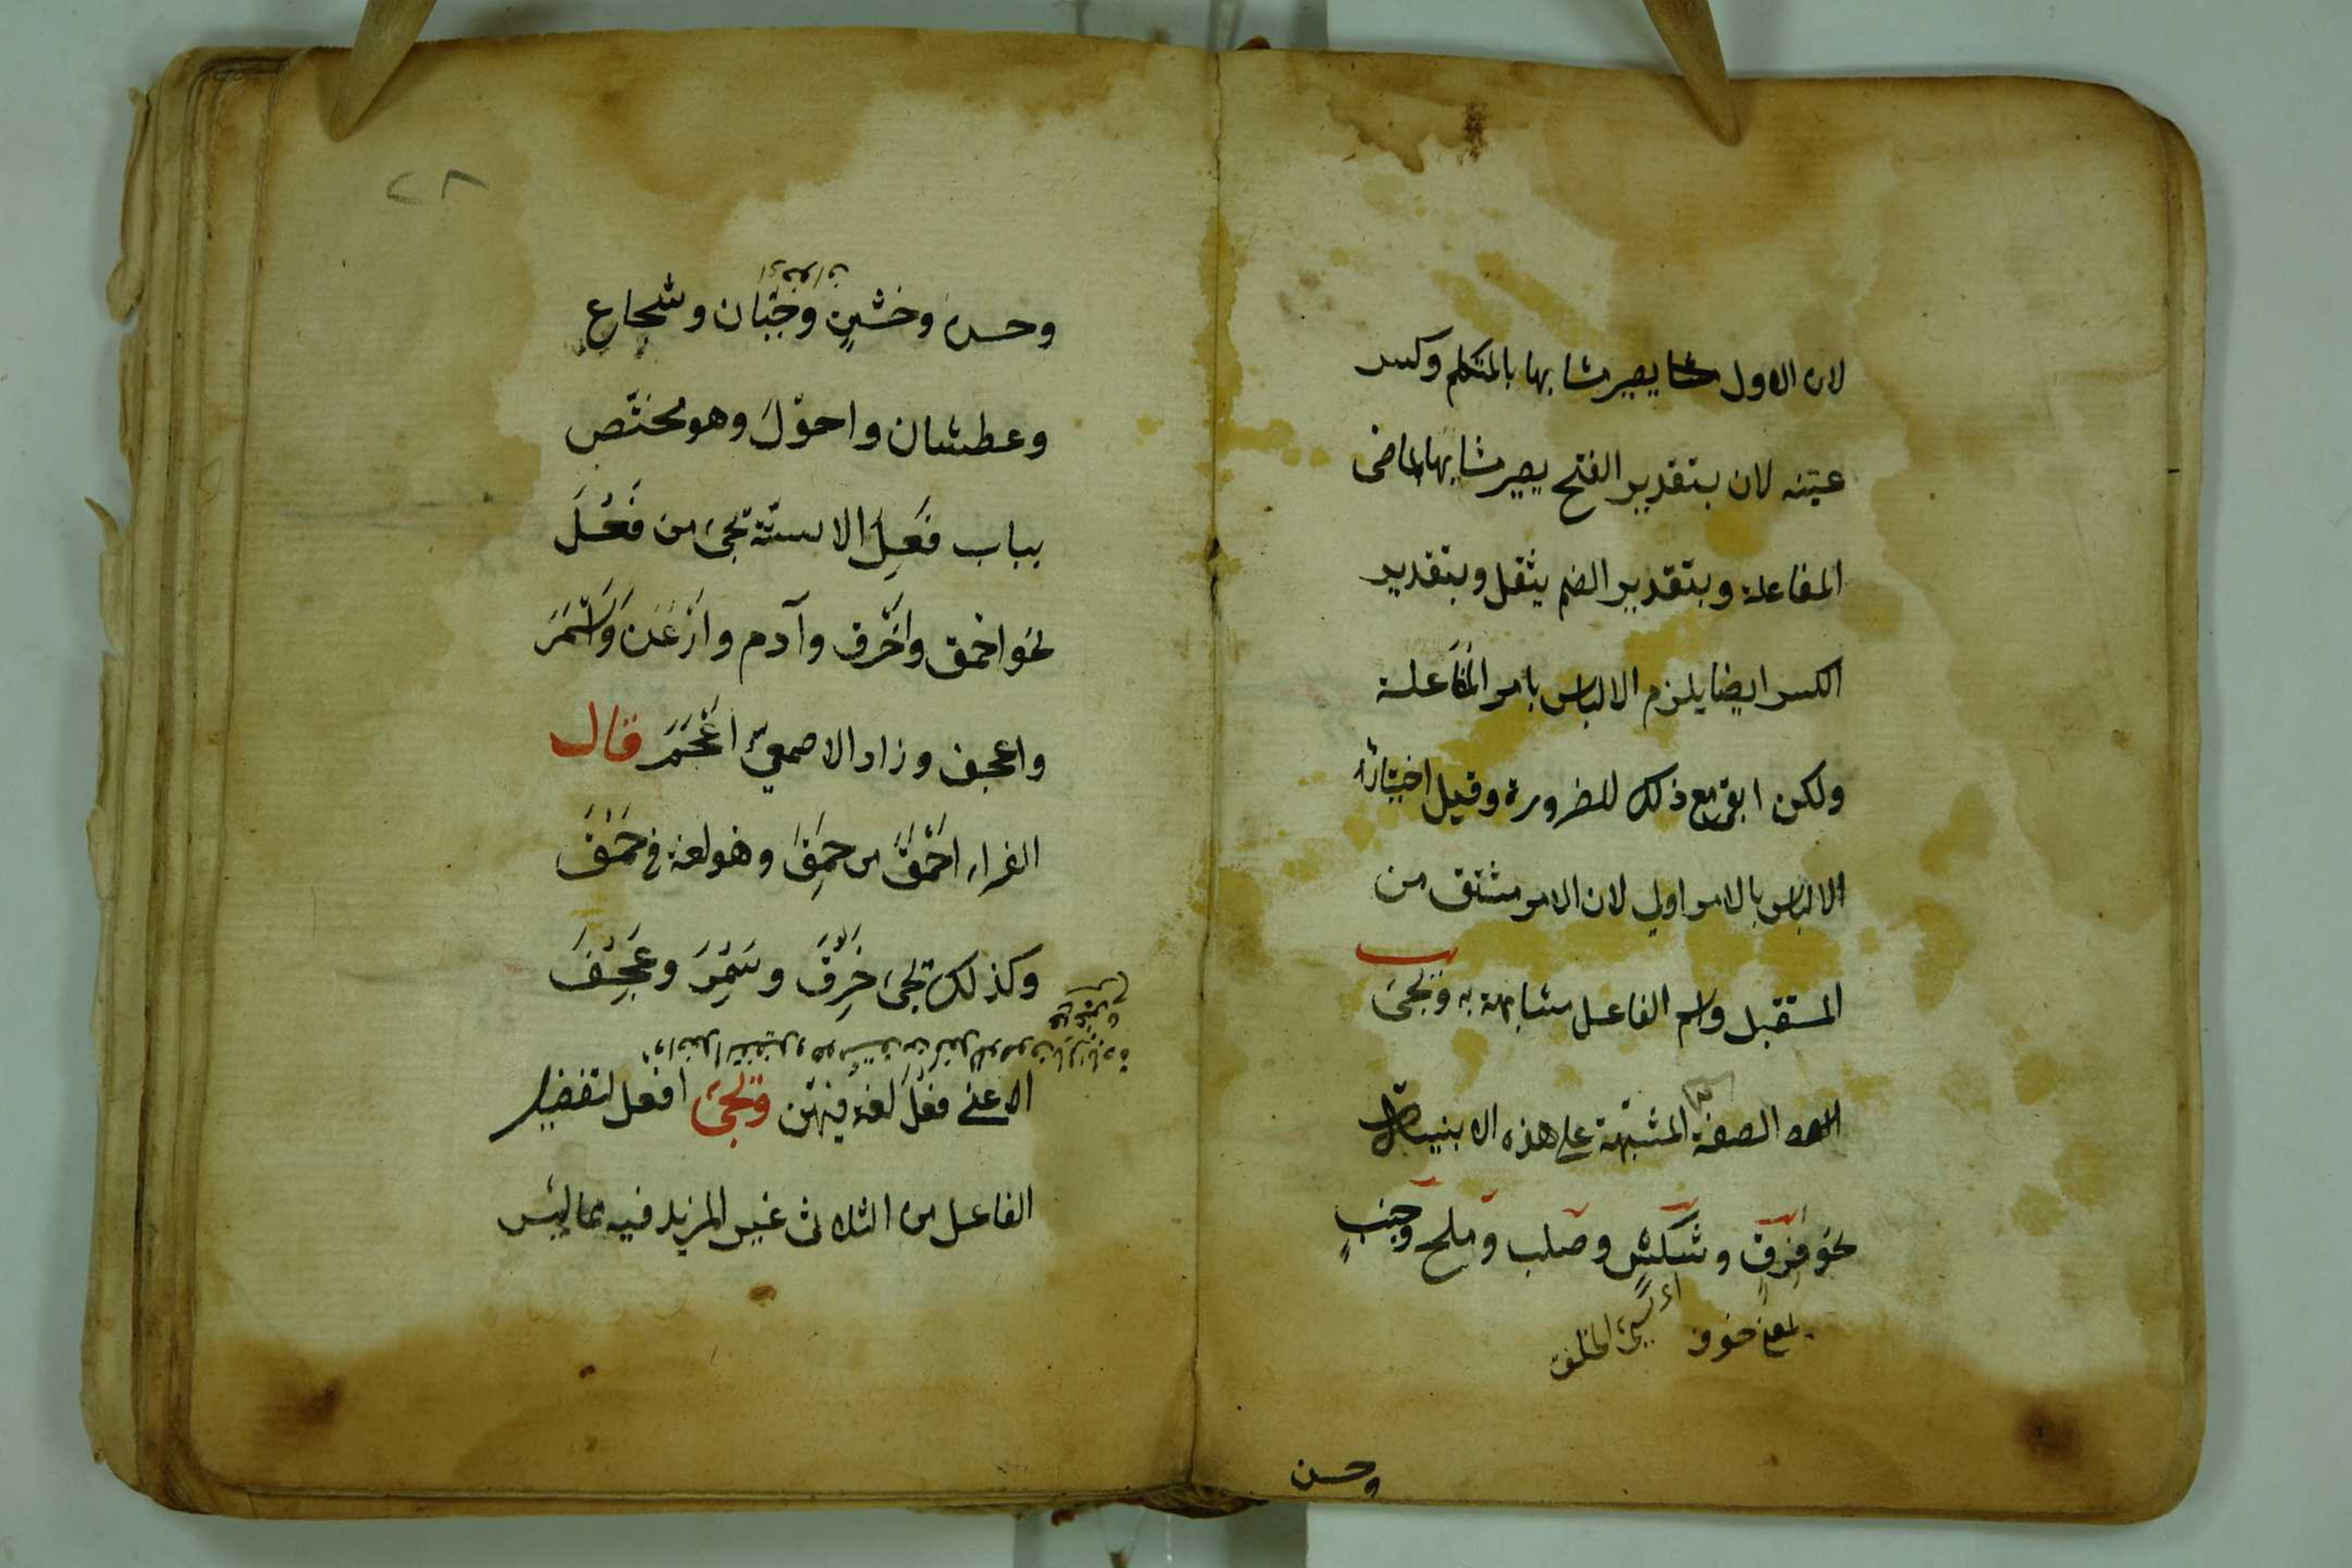 لان الاول يصير مشابها بالمتكلم وكسر
عينه لان بتقدير الفتح يصير مشابها بماضى
المفاعلة وبتقدير الضم يثقل وبتقدير
الكسر ايضا يلزم الالباس بامر المُفَاعلة
ولكن ابقى مع ذلك للضرورة وقيل اختيار
الالباس بالامر اولى لان الامر مشتق من
المستقبل واسم الفاعل مشابهة به وتجئ
الصفة المشبهة على هذه الابنية
نحو فَرِقٍ وشَكْسٍ وصلب وملح وجنبٍ
بمعنى خوف
اى سيئ الخلق
وحسن
٢٨
وحسن وخَشِنٍ وجَبَان وشجاع
وعطشان واحْوَلَ وهو مختَص
بباب فَعِلَ الا ستة تجئ من فَعُلَ
نحو احمق واَخْرَق وآدم واَرْعَن واَسْمَرَ
واعجف وزاد الاصمعيّ اَعْجَمَ قال
الفراء اَحْمَقُ من حَمِقَ وهو لغة فى حَمُقَ
وكذلك تجئ خَرِقَ وسَمِرَ وعَجِفَ
الاعنى فَعُلَ لغة فيهن وتجئ افعل لتفضيل
الفاعل من الثلاثى غير المزيد فيه مما ليس